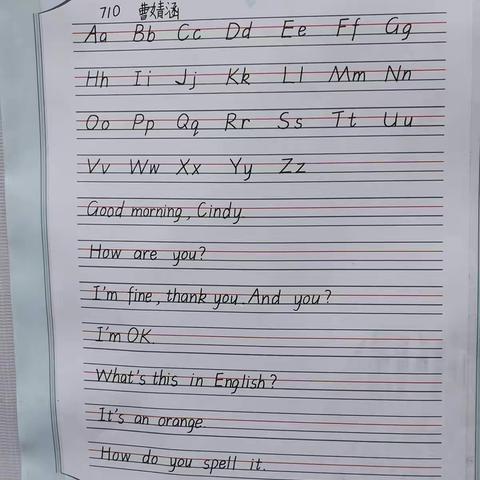 710 曹婧涵
Aa Bb Cc Dd Ee Ff Gg
Hh Ii Jj Kk Ll Mm Nn
Oo Pp Qq Rr Ss Tt Uu
Vv Ww Xx Yy Zz
Good morning, Cindy
How are you?
I'm fine, thank you. And you?
I'm OK.
What's this in English?
It's an orange.
How do you spell it.